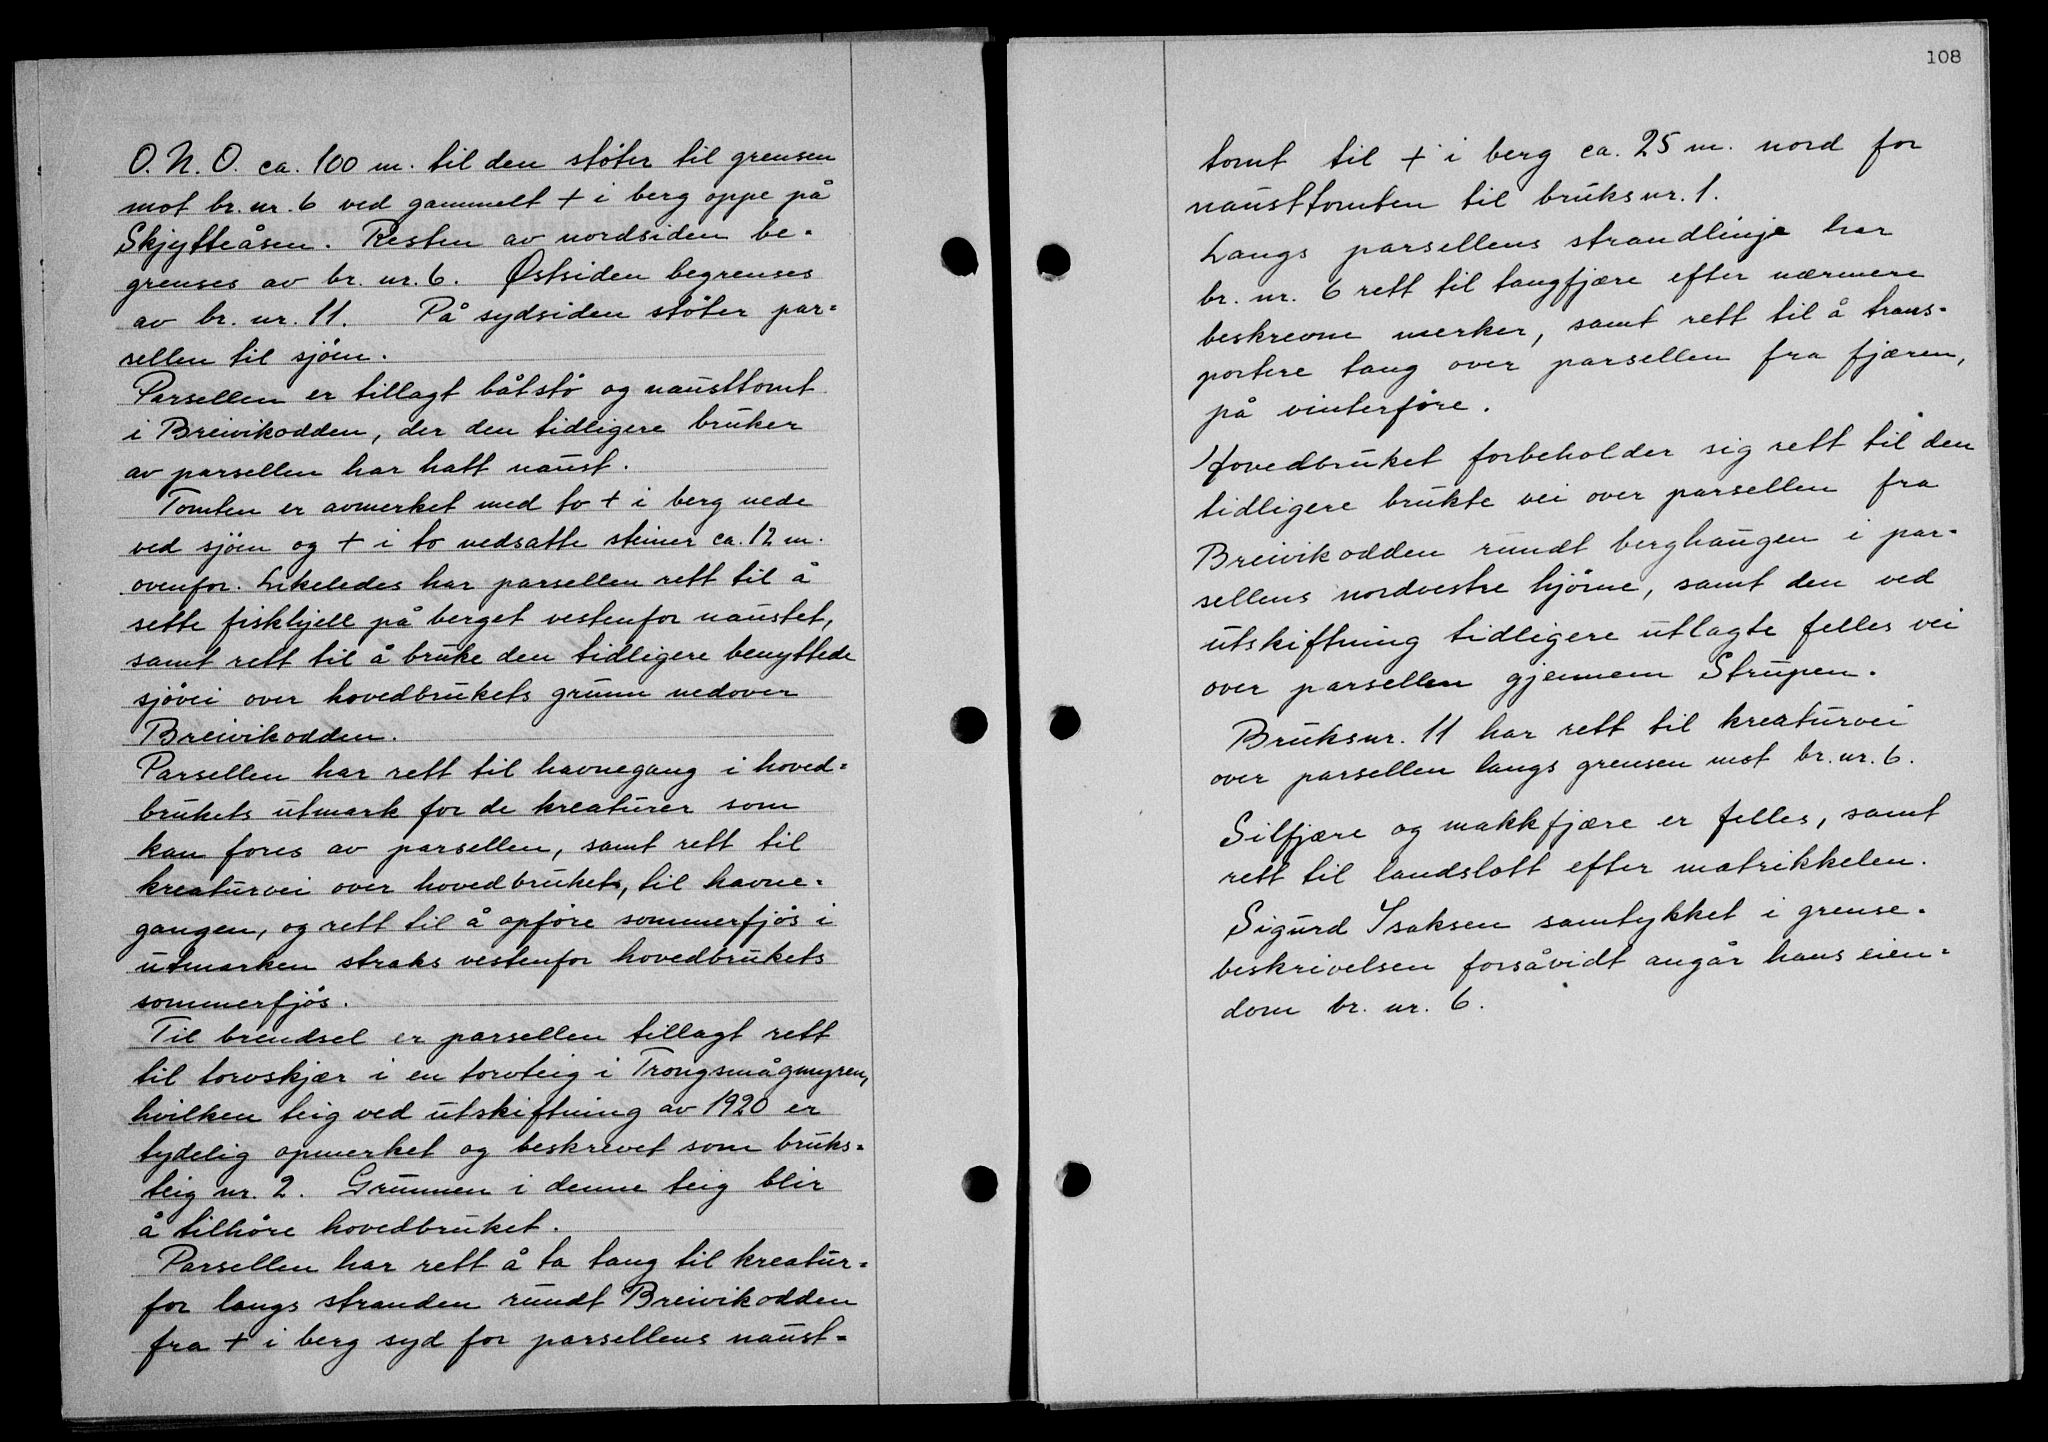 O. N. O. ca. 100 m. til den støter til grensen
mot br. nr. 6 ved gammelt + i berg oppe på
Skjytteåsen. Resten av nordsiden be-
grenses av br. nr. 6. Østsiden begrenses
av br. nr. 11. På sydsiden støter par-
sellen til sjøen.
Parsellen er tillagt båtstø og nausttomt
i Breivikodden, der den tidligere bruker
av parsellen har hatt naust.
Tomten er avmerket med to + i berg nede
ved sjøen og + i to nedsatte steiner ca. 12 m.
ovenfor. Likeledes har parsellen rett til å
sette fiskhjell på berget vestenfor naustet,
samt rett til å bruke den tidligere benyttede
sjøvei over hovedbrukets grunn nedover
Breivikodden.
Parsellen har rett til havnegang i hoved-
brukets utmark for de kreaturer som
kan fores av parsellen, samt rett til
kreaturvei over hovedbrukets, til havne-
gangen, og rett til å opføre sommerfjøs i
utmarken straks vestenfor hovedbrukets
sommerfjøs.
Til brendsel er parsellen tillagt rett
til torvskjær i en torvteig i Trongsmågmyren,
hvilken teig ved utskiftning av 1920 er
tydelig opmerket og beskrevet som bruks-
teig nr. 2. Grunnen i denne teig blir
å tilhøre hovedbruket.
Parsellen har rett å ta tang til kreatur-
for langs stranden rundt Breivikodden
fra + i berg syd for parsellens naust-
108
tomt til + i berg ca. 25 m. nord for
nausttomten til bruksnr. 1.
Langs parsellens strandlinje har
br. nr. 6 rett til tangfjære efter nærmere
beskrevne merker, samt rett til å trans-
portere tang over parsellen fra fjæren,
på vinterføre.
Hovedbruket forbeholder sig rett til den
tidligere brukte vei over parsellen fra
Breivikodden rundt berghaugen i par-
sellens nordvestre hjørne, samt den ved
utskiftning tidligere utlagte felles vei
over parsellen gjennem Strupen.
Bruksnr. 11 har rett til kreaturvei
over parsellen langs grensen mot br. nr. 6.
Silfjære og makkfjære er felles, samt
rett til landslott efter matrikkelen.
Sigurd Isaksen samtykket i grense-
beskrivelsen forsåvidt angår hans eien-
dom br. nr. 6.